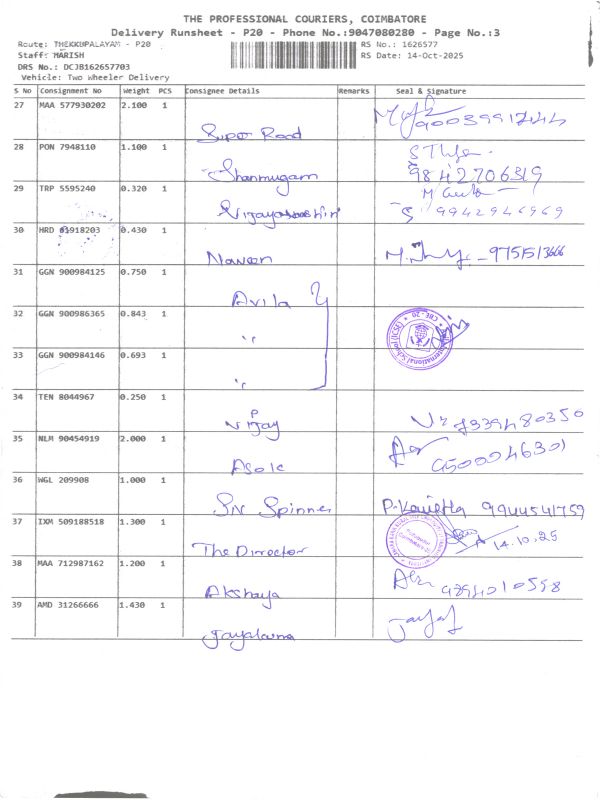 THE PROFESSIONAL COURIERS, COIMBATORE
Delivery Runsheet - P20 - Phone No.:9047080280 - Page No.:3
Route: THEKKUPALAYAM - P20
RS No.: 1626577
Staff: MARISH
RS Date: 14-Oct-2025
DRS No.: DCJB162657703
Vehicle: Two Wheeler Delivery
S No Consignment No Weight PCS Consignee Details Remarks Seal & Signature
27 MAA 577930202 2.100 1
Super Road
28 PON 7948110 1.100 1
Shanmugam 9842706319
29 TRP 5595240 0.320 1
9942946969
30 HRD 81918203 0.430 1
Naveen 9751513666
31 GGN 900984125 0.750 1
Avila
32 GGN 900986365 0.843 1
"
International School (ICSE) * CBE-20 *
33 GGN 900984146 0.693 1
"
34 TEN 8044967 0.250 1
Vijay P 7339480350
35 NLM 90454919 2.000 1
Asok 9500046301
36 WGL 209908 1.000 1
SN Spinner P. Kavitha 9944541759
37 IXM 509188518 1.300 1
The Director 14.10.25
38 MAA 712987162 1.200 1
Akshaya 9894010598
39 AMD 31266666 1.430 1